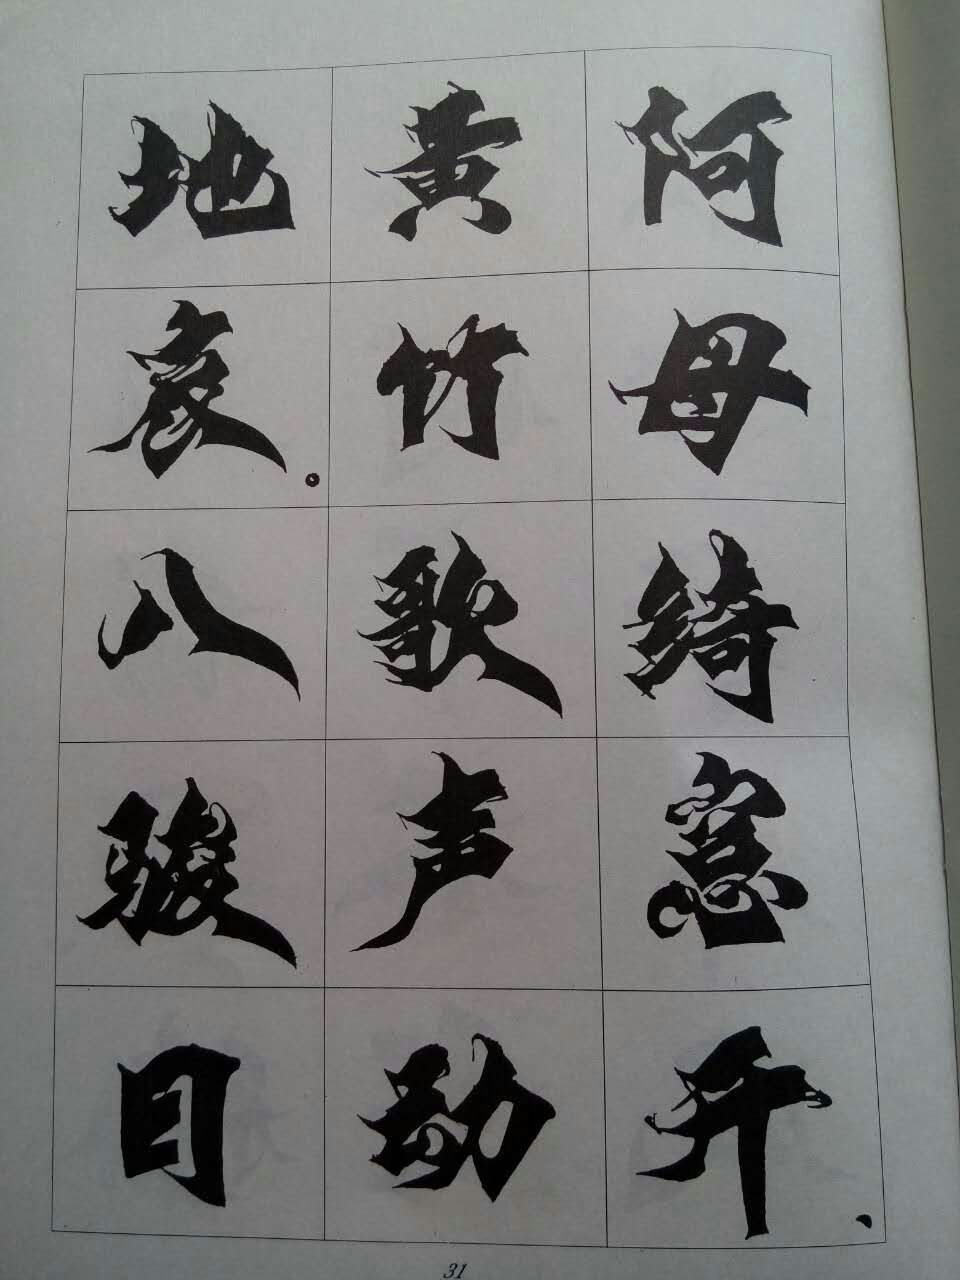 阿母绮窓开、
黄竹歌声动
地哀。八骏日
31